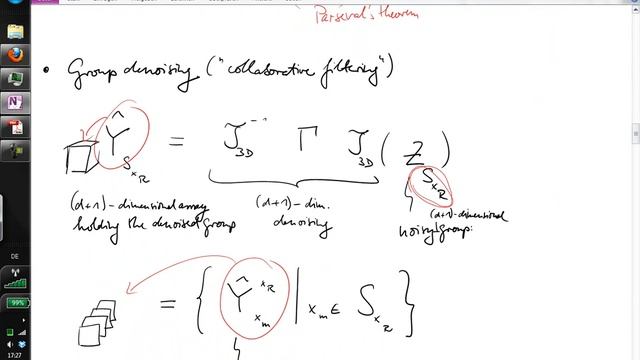 Parseval's theorem
• Group denoising ("collaborative filtering")
Ŷ_{S_{x_R}} = T_{3D}^{-1} Γ T_{3D} ( Z_{S_{x_R}} )
(d+1)-dimensional array (d+1)-dim. (d+1)-dimensional
holding the denoised group denoising noisy group:
= { Ŷ_{x_m}^{x_R} | x_m ∈ S_{x_R} }
DE
99%
17:27